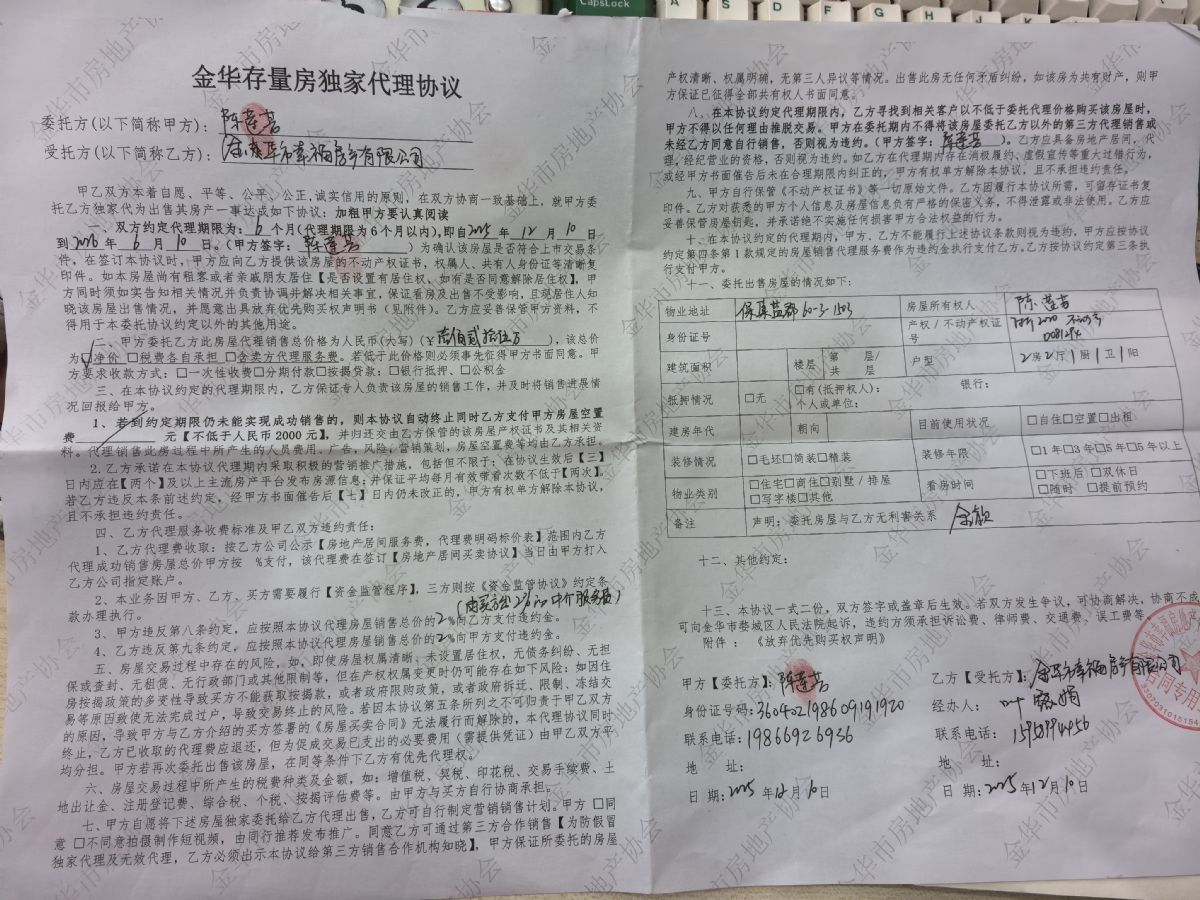 CapsLock A S D F G H J K L
金华存量房独家代理协议
委托方(以下简称甲方)：
受托方(以下简称乙方)：金华市幸福房产有限公司
甲乙双方本着自愿、平等、公平、公正,诚实信用的原则，在双方协商一致基础上，就甲方委
托乙方独家代为出售其房产一事达成如下协议：加粗甲方要认真阅读
一、双方约定代理期限为：6 个月(代理期限为6个月以内),即自2025 年 12 月 10 日
到2026 年 6 月 10 日。(甲方签字： ）为确认该房屋是否符合上市交易条
件，在签订本协议时，甲方应向乙方提供该房屋的不动产权证书，权属人、共有人身份证等清晰复
印件。如本房屋尚有租客或者亲戚朋友居住【是否设置有居住权、如有是否同意解除居住权】，甲
方同时须如实告知相关情况并负责协调并解决相关事宜，保证看房及出售不受影响，且现居住人知
晓该房屋出售情况，并愿意出具放弃优先购买权声明书（见附件）。乙方应妥善保管甲方资料，不
得用于本委托协议约定以外的其他用途。
二、甲方委托乙方此房屋代理销售总价格为人民币(大写)(￥壹佰贰拾伍万 )，该总价
为√净价 □税费各自承担 □含卖方代理服务费。若低于此价格则必须事先征得甲方书面同意。甲
方要求收款方式：□一次性收费□分期付款□按揭贷款：□银行抵押、□公积金
三、在本协议约定的代理期限内，乙方保证专人负责该房屋的销售工作，并及时将销售进展情
况回报给甲方。
1、若到约定期限仍未能实现成功销售的，则本协议自动终止同时乙方支付甲方房屋空置
费 元【不低于人民币 2000 元】，并归还交由乙方保管的该房屋产权证书及其相关资
料。代理销售此房过程中所产生的人员费用、广告，风险，营销策划，房屋空置费等均由乙方承担。
2.乙方承诺在本协议代理期内采取积极的营销推广措施，包括但不限于：在协议生效后【三】
日内应在【两个】及以上主流房产平台发布房源信息；并保证平均每月有效带看次数不低于【两次】。
若乙方违反本条前述约定，经甲方书面催告后【七】日内仍未改正的，甲方有权单方解除本协议，
且不承担违约责任。
四、乙方代理服务收费标准及甲乙双方违约责任：
1、乙方代理费收取：按乙方公司公示【房地产居间服务费，代理费明码标价表】范围内乙方
代理成功销售房屋总价甲方按 %支付，该代理费在签订【房地产居间买卖协议】当日由甲方打入
乙方公司指定账户。
2、本业务因甲方、乙方、买方需要履行【资金监管程序】，三方则按《资金监管协议》约定条
款办理执行。
（由买方出2%的中介服务费）
3、甲方违反第八条约定，应按照本协议代理房屋销售总价的2%向乙方支付违约金。
4、乙方违反第九条约定，应按照本协议代理房屋销售总价的2%向甲方支付违约金。
五、房屋交易过程中存在的风险。如，即使房屋权属清晰、未设置居住权，无债务纠纷、无担
保或查封、无租赁、无行政部门或其他限制等，但在产权权属变更时仍可能存在如下风险：如因住
房按揭政策的多变性导致买方不能获取按揭款，或者政府限购政策，或者政府拆迁、限制、冻结交
易等原因致使无法完成过户，导致交易终止的风险。若因本协议第五条所列之不可归责于甲乙双方
的原因，导致甲方与乙方介绍的买方签署的《房屋买卖合同》无法履行而解除的，本代理协议同时
终止，乙方已收取的代理费应退还，但为促成交易已支出的必要费用（需提供凭证）由甲乙双方平
均分担。甲方若再次委托出售该房屋，在同等条件下乙方有优先代理权。
六、房屋交易过程中所产生的税费种类及金额，如：增值税、契税、印花税、交易手续费、土
地出让金、注册登记费、综合税、个税、按揭评估费等。由甲方与买方自行协商承担。
七、甲方自愿将下述房屋独家委托给乙方代理出售，乙方可自行制定营销销售计划。甲方 □同
意 □不同意拍摄制作短视频，由同行推荐发布推广。同意乙方可通过第三方合作销售【为防假冒
独家代理及无效代理，乙方必须出示本协议给第三方销售合作机构知晓】，甲方保证所委托的房屋
产权清晰、权属明确，无第三人异议等情况。出售此房无任何矛盾纠纷，如该房为共有财产，则甲
方保证已征得全部共有权人书面同意。
八、在本协议约定代理期限内，乙方寻找到相关客户以不低于委托代理价格购买该房屋时，
甲方不得以任何理由推脱交易。甲方在委托期内不得将该房屋委托乙方以外的第三方代理销售或
未经乙方同意自行销售，否则视为违约。（甲方签字： ）乙方应具备房地产居间，代
理，经纪营业的资格，否则视为违约。如乙方在代理期内存在消极履约、虚假宣传等重大过错行为，
或经甲方书面催告后未在合理期限内纠正的，甲方有权单方解除本协议，且不承担违约责任。
九、甲方自行保管《不动产权证书》等一切原始文件。乙方因履行本协议所需，可留存证书复
印件。乙方对获悉的甲方个人信息及房屋信息负有严格的保密义务，不得泄露或非法使用。乙方应
妥善保管房屋钥匙，并承诺绝不实施任何损害甲方合法权益的行为。
十、在本协议约定的代理期内，甲方、乙方不能履行上述协议条款则视为违约，甲方应按协议
约定第四条第1款规定的房屋销售代理服务费作为违约金执行支付乙方。乙方按协议约定第三条执
行支付甲方。
十一、委托出售房屋的情况如下：
物业地址 保集蓝郡60-3-1503 房屋所有权人
身份证号 产权/不动产权证号
建筑面积 楼层 第 层/共 层 户型 2房2厅1厨1卫1阳
抵押情况 □无 □有(抵押权人)： 银行：
个人或单位：
建房年代 朝向 目前使用状况 □自住□空置□出租
装修情况 □毛坯□简装□精装 装修年限 □1年□3年□5年□5年以上
物业类别 □住宅□商住□别墅/排屋 □写字楼□其他 看房时间 □下班后 □双休日 □随时 □提前预约
备注 声明：委托房屋与乙方无利害关系
十二、其他约定：
十三、本协议一式二份，双方签字或盖章后生效。若双方发生争议，可协商解决，协商不成
可向金华市婺城区人民法院起诉，违约方须承担诉讼费、律师费、交通费、误工费等。
附件：《放弃优先购买权声明》
甲方【委托方】：
身份证号码：360402198609191920
联系电话：19866926956
地 址：
日 期：2025 年12月10日
乙方【受托方】：金华市幸福房产有限公司
经办人：
联系电话：
地 址：
日 期：2025 年12月10日